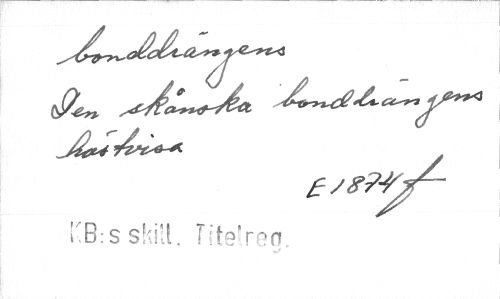 bonddrängens
Den skånska bonddrängens
hästvisa
E 1874 f
KB:s skill. Titelreg.